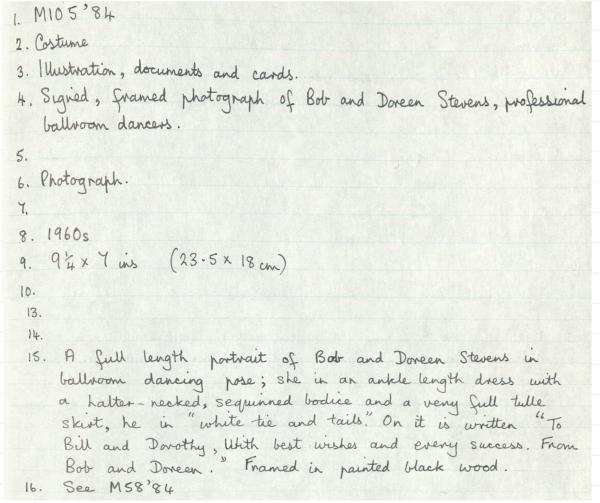 1. M105'84
2. Costume
3. Illustration, documents and cards.
4. Signed, framed photograph of Bob and Doreen Stevens, professional
ballroom dancers.
5.
6. Photograph.
7.
8. 1960s
9. 9¼ x 7 ins (23.5 x 18 cm)
10.
13.
14.
15. A full length portrait of Bob and Doreen Stevens in
ballroom dancing pose; she in an ankle length dress with
a halter-necked, sequinned bodice and a very full tulle
skirt, he in "white tie and tails." On it is written "To
Bill and Dorothy, With best wishes and every success. From
Bob and Doreen." Framed in painted black wood.
16. See M58'84